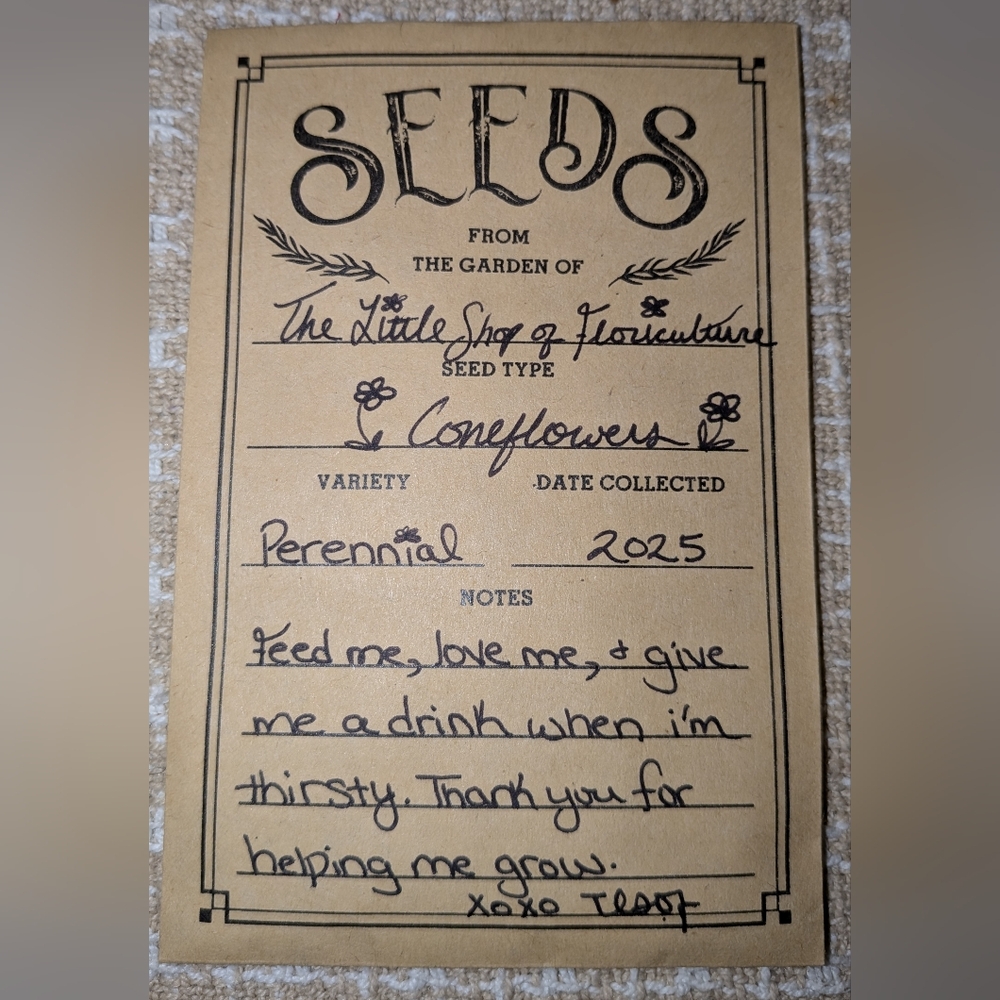 SEEDS
FROM
THE GARDEN OF
The Little Shop of Floriculture
SEED TYPE
Coneflowers
VARIETY DATE COLLECTED
Perennial 2025
NOTES
Feed me, love me, & give
me a drink when i'm
thirsty. Thank you for
helping me grow.
xoxo TLSOF